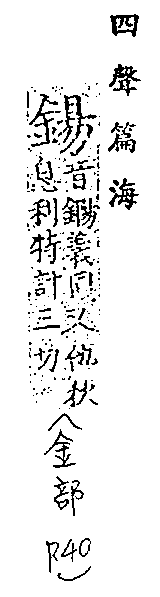 四聲篇海
錫
音義同又他狄
息利特計三切
(金部
P40)